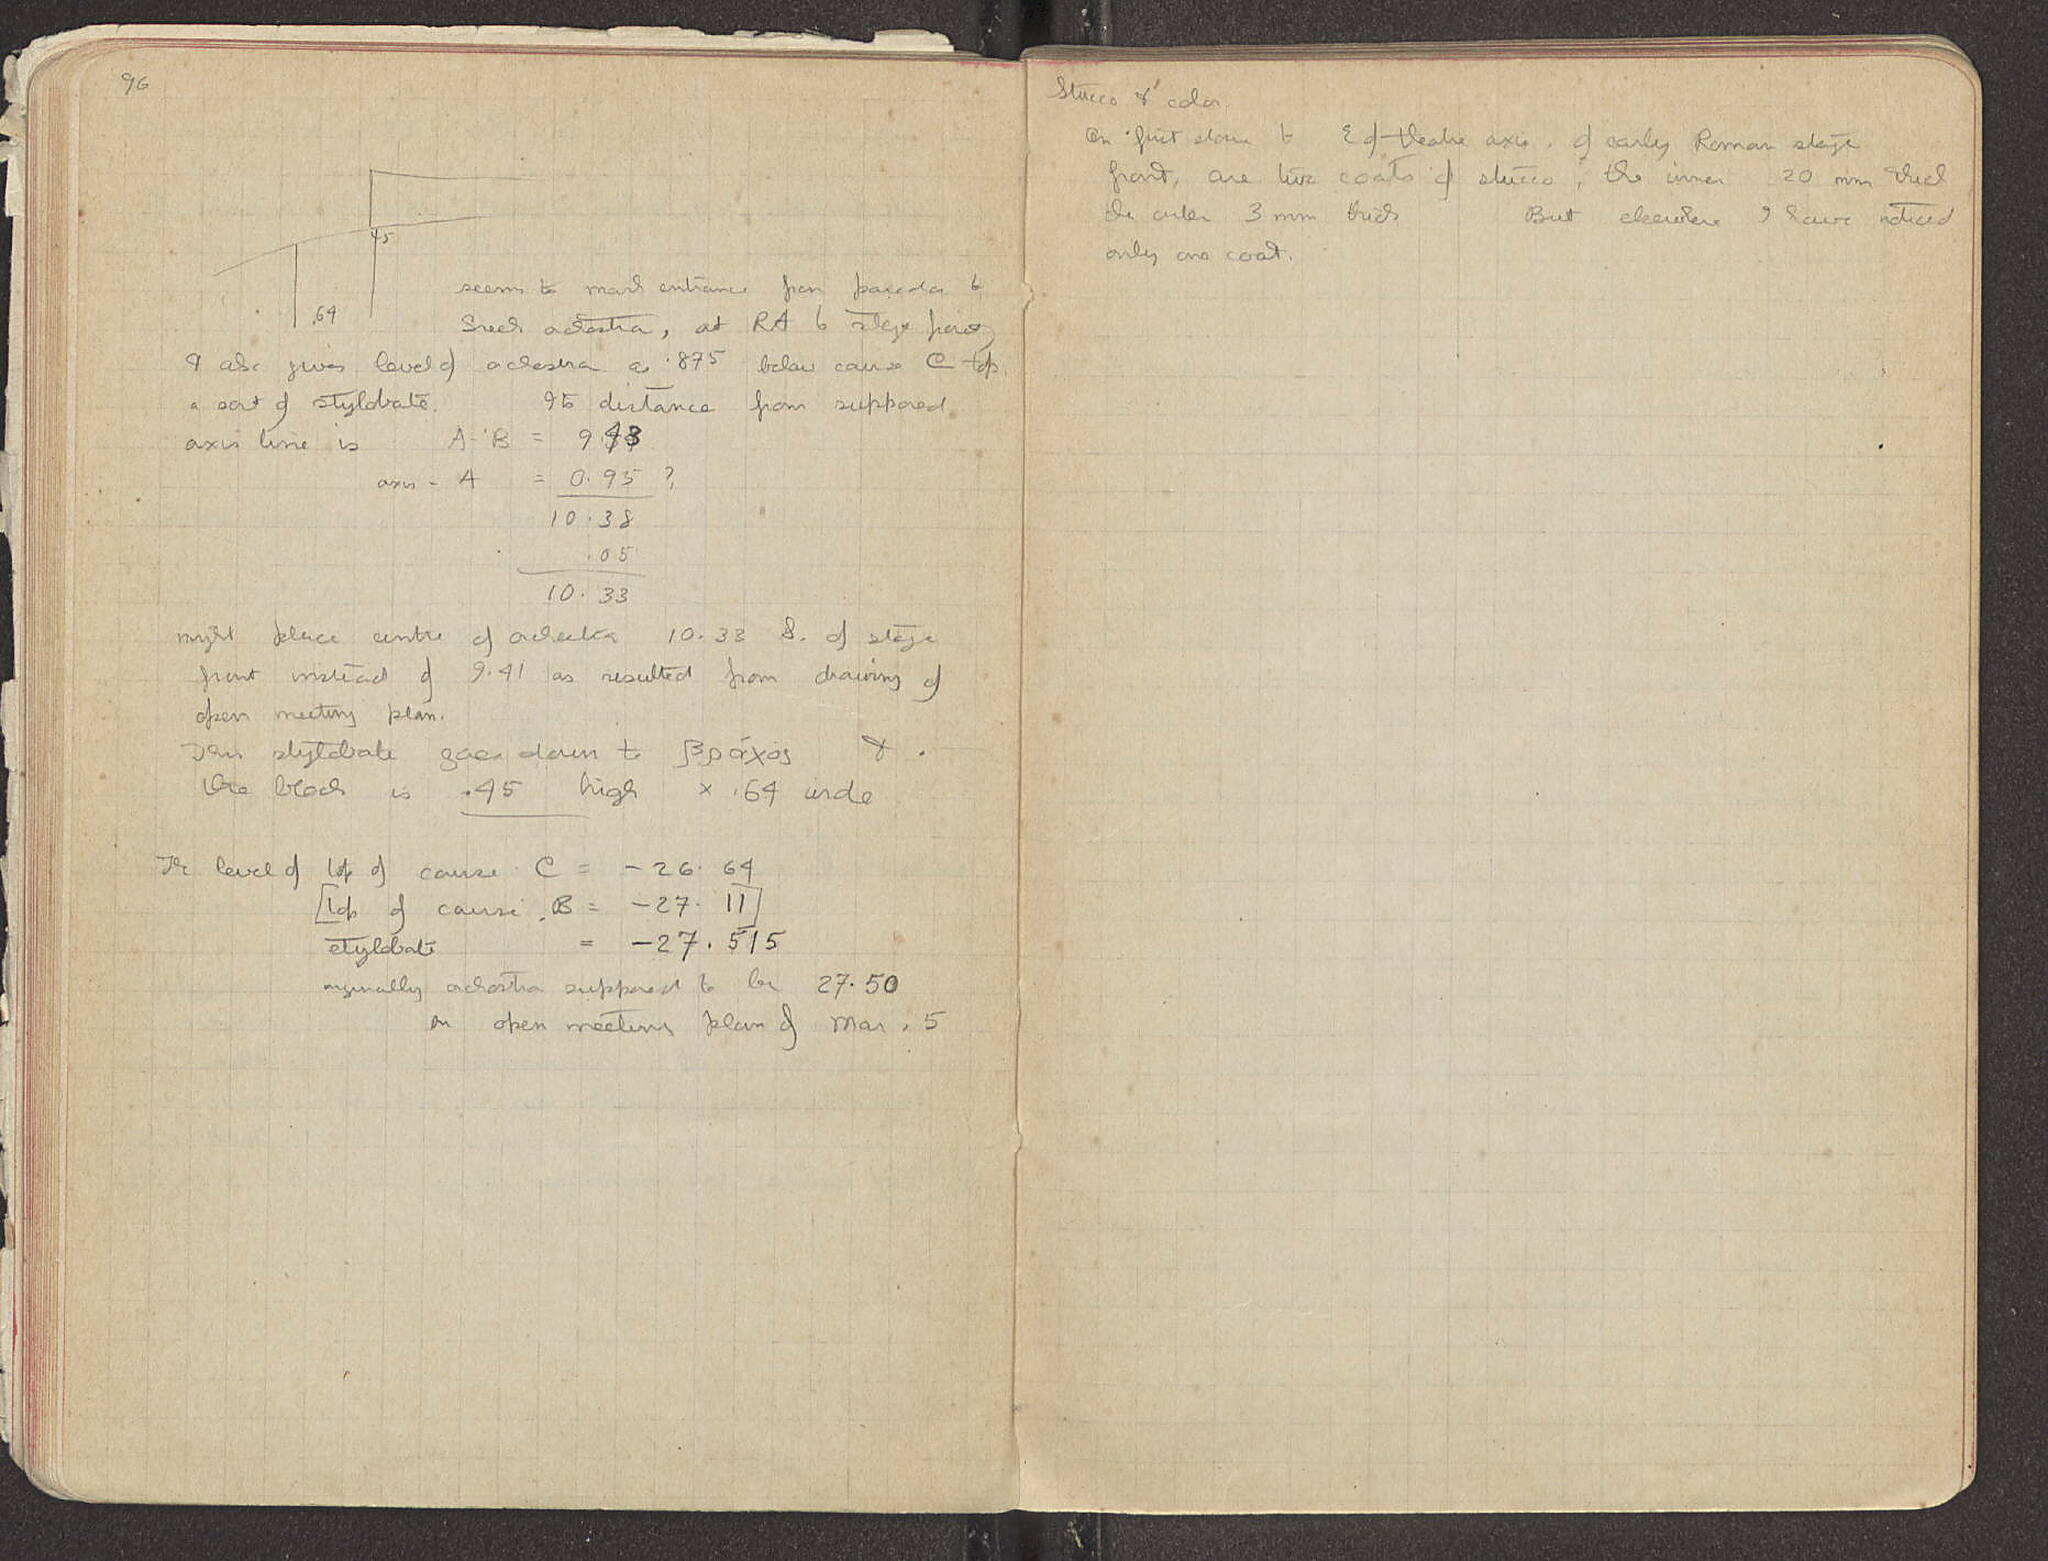 96
.45
.64
seems to mark entrance from parodos to
Greek orchestra, at RA to stage front
& also gives level of orchestra as .875 below course C top.
a sort of stylobate. Its distance from supposed
axis line is A-B = 9 43
axis - A = 0.95 ?
10.38
.05
10.33
might place centre of orchestra 10.33 S. of stage
front instead of 9.41 as resulted from drawing of
open meeting plan.
This stylobate goes down to βράχος &
the block is .45 high x .64 wide
The level of top of course C = -26.64
[top of course B = -27.11]
stylobate = -27.515
originally orchestra supposed to be 27.50
on open meeting plan of Mar. 5
Stucco & color.
On first door to E of theatre axis, of early Roman stage
front, are two coats of stucco, the inner 20 mm thick
the outer 3 mm thick But elsewhere I have noticed
only one coat.